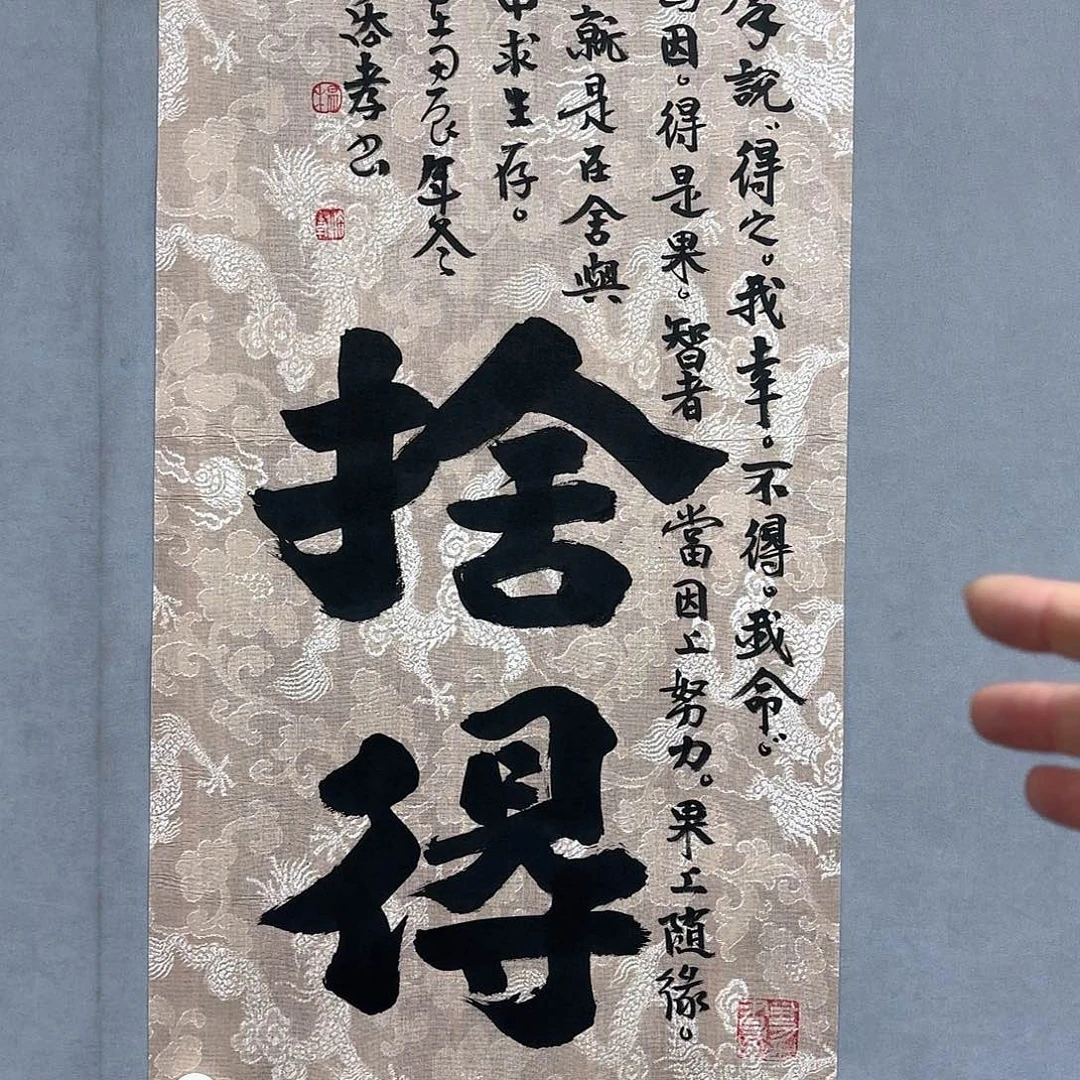 說“得之。我幸。不得。我命”。
因。得是果。智者當因上努力。果上隨緣。
就是在舍與
求生存。
在甲辰年冬
孝书
捨得